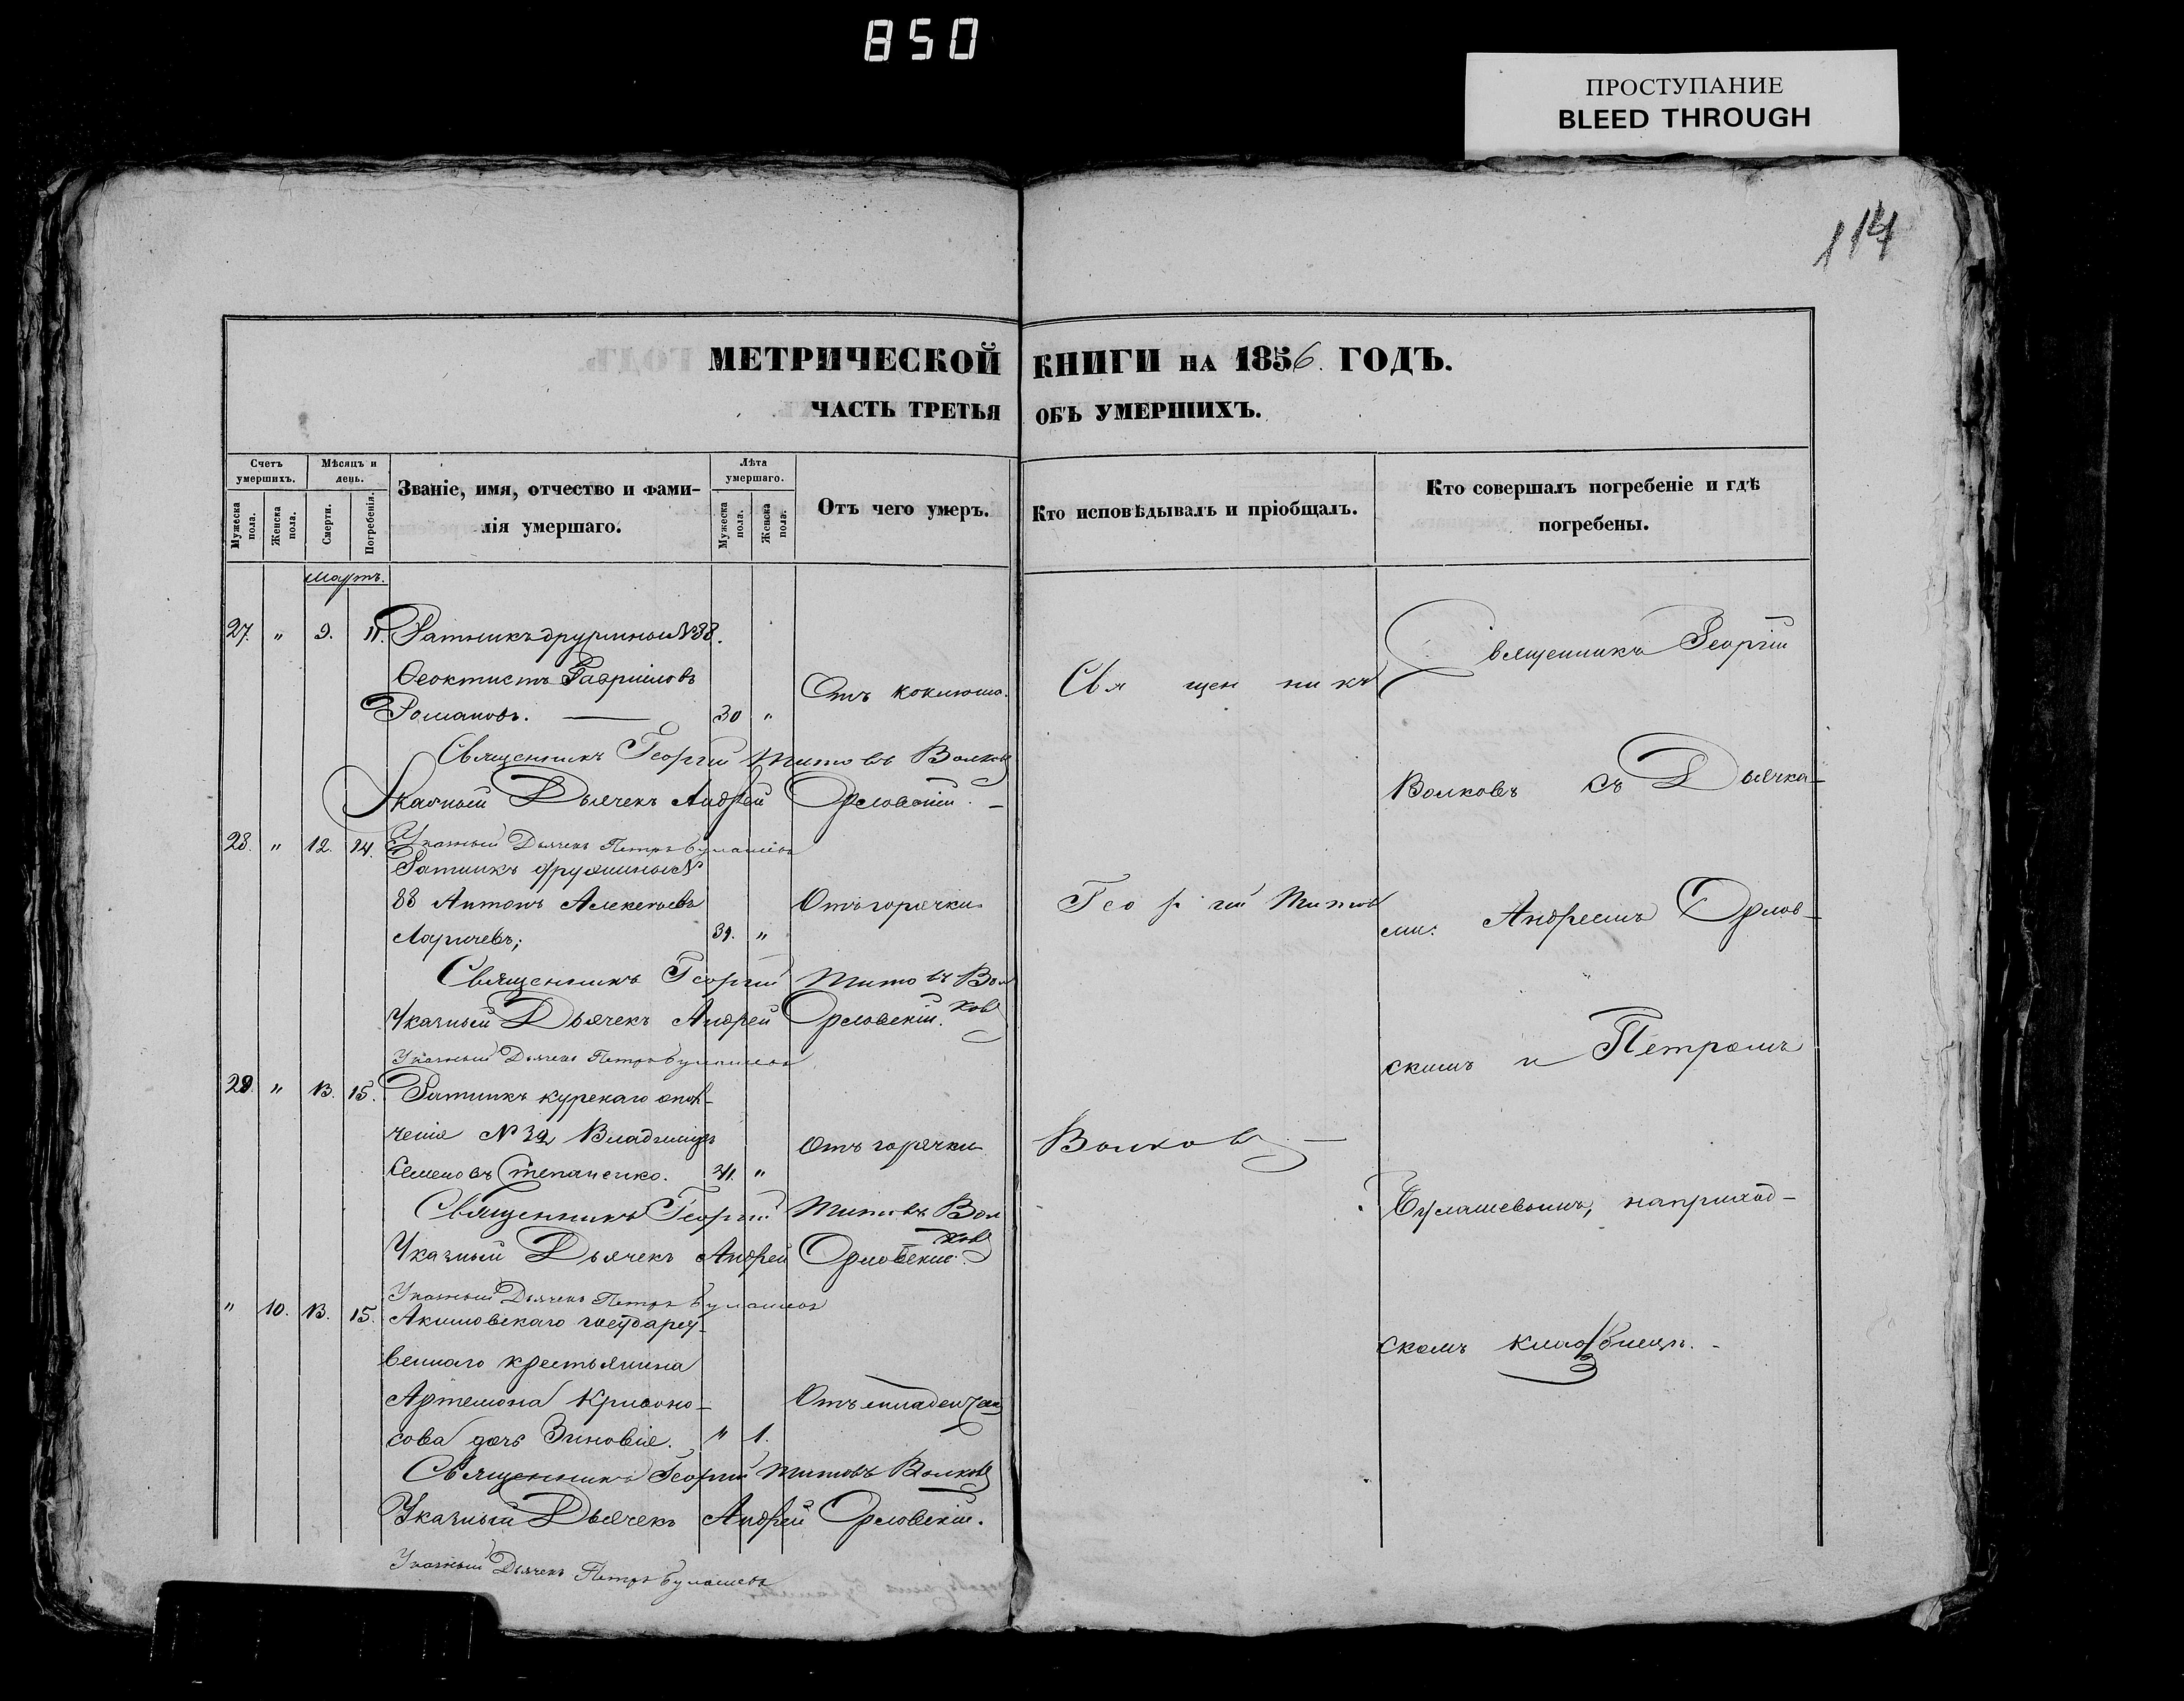 850
ПРОСТУПАНИЕ
BLEED THROUGH
114
МЕТРИЧЕСКОЙ КНИГИ НА 1856. ГОДЪ.
ЧАСТЬ ТРЕТЬЯ ОБЪ УМЕРШИХЪ.
Счетъ умершихъ.
Мужеска пола.
Женска пола.
Мѣсяцъ и день.
Смерти.
Погребенія.
Званіе, имя, отчество и фами-
лія умершаго.
Лѣта умершаго.
Мужеска пола.
Женска пола.
Отъ чего умеръ.
Кто исповѣдывалъ и пріобщалъ.
Кто совершалъ погребеніе и гдѣ
погребены.
Мартъ.
27. " 9. 11. Ратникъ дружины №
Ѳеоктистъ Гавриловъ
Романовъ. — 30 " Отъ коклюша.
Священникъ Георгій Титовъ Волковъ
Указный Дьячекъ Андрей Орловскій. —
Указный Дьячекъ Петръ Булашевъ
28. " 12. 14. Ратникъ дружины №
88 Антонъ Алексѣевъ Отъ горячки
Ларичевъ; "
Священникъ Георгій Титовъ Вол
ковъ
Указный Дьячекъ Андрей Орловскій.
Указный Дьячекъ Петръ Булашевъ
29. " 13. 15. Ратникъ курскаго опол-
ченія № Владиміръ Отъ горячки
Семеновъ Степаненко. "
Священникъ Георгій Титовъ Вол
ковъ
Указный Дьячекъ Андрей Орловскій.
Указный Дьячекъ Петръ Булашевъ
" 10. 13. 15. Акимовскаго государст-
веннаго крестьянина
Артемона Кривоно- Отъ младенческ
сова дочь Зиновія. " 1.
Священникъ Георгій Титовъ Волковъ
Указный Дьячекъ Андрей Орловскій.
Указный Дьячекъ Петръ Булашевъ
Священникъ
Георгій Титовъ
Волковъ —
Священникъ Георгій
Волковъ съ Дьячка-
ми: Андреемъ Орлов-
скимъ и Петромъ
Булашевымъ, на приход-
скомъ кладбищѣ. -